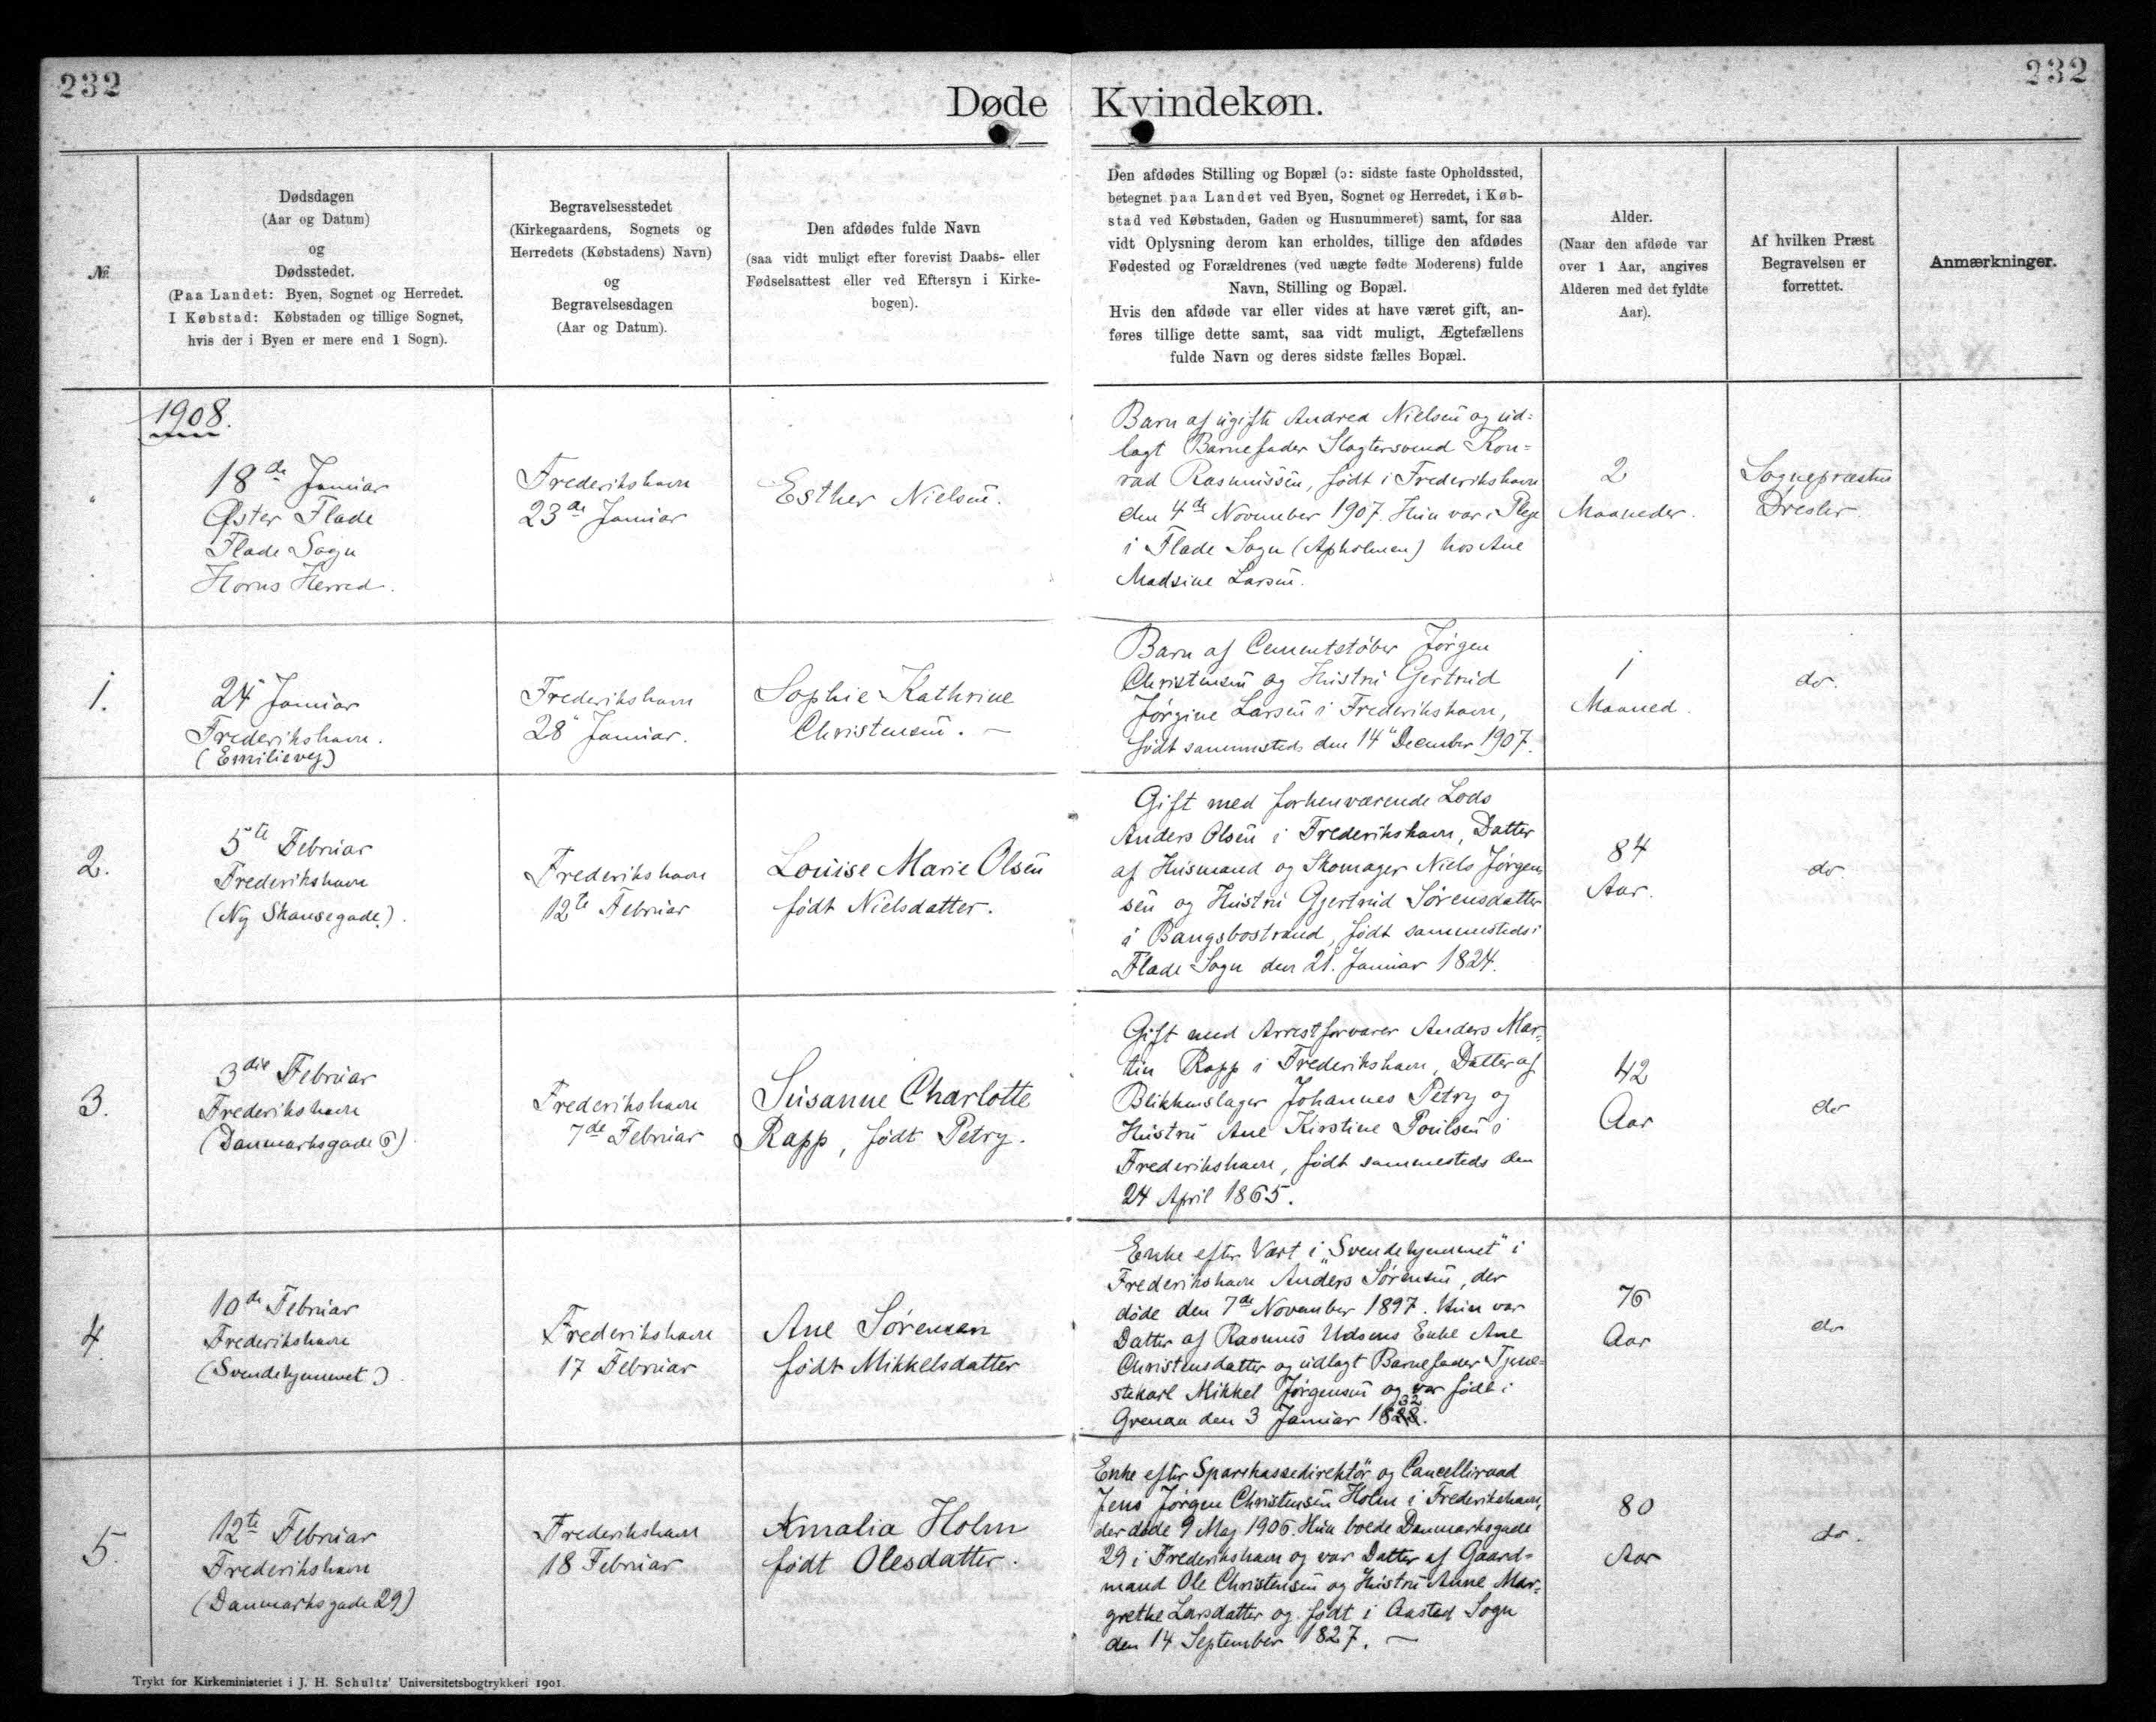 232
232
Døde Kvindekøn.
№
Dødsdagen
(Aar og Datum)
og
Dødsstedet.
(Paa Landet: Byen, Sognet og Herredet.
I Købstad: Købstaden og tillige Sognet,
hvis der i Byen er mere end 1 Sogn).
Begravelsesstedet
(Kirkegaardens, Sognets og
Herredets (Købstadens) Navn)
og
Begravelsesdagen
(Aar og Datum).
Den afdødes fulde Navn
(saa vidt muligt efter forevist Daabs- eller
Fødselsattest eller ved Eftersyn i Kirke-
bogen).
Den afdødes Stilling og Bopæl (ɔ: sidste faste Opholdssted,
betegnet paa Landet ved Byen, Sognet og Herredet, i Køb-
stad ved Købstaden, Gaden og Husnummeret) samt, for saa
vidt Oplysning derom kan erholdes, tillige den afdødes
Fødested og Forældrenes (ved uægte fødte Moderens) fulde
Navn, Stilling og Bopæl.
Hvis den afdøde var eller vides at have været gift, an-
føres tillige dette samt, saa vidt muligt, Ægtefællens
fulde Navn og deres sidste fælles Bopæl.
Alder.
(Naar den afdøde var
over 1 Aar, angives
Alderen med det fyldte
Aar).
Af hvilken Præst
Begravelsen er
forrettet.
Anmærkninger.
1908.
"
18de Januar
Øster Flade
Flade Sogn
Horns Herred.
Frederikshavn
23de Januar
Esther Nielsen.
Barn af ugifte Andrea Nielsen og ud=
lagt Barnefader Slagtersvend Kon=
rad Rasmussen, født i Frederikshavn
den 4de November 1907. Hun var i Pleje
i Flade Sogn (Apholmen) hos Ane
Madsine Larsen.
2
Maaneder.
Sognepræsten
Dresler.
1.
24" Januar
Frederikshavn.
(Emilievej)
Frederikshavn
28" Januar.
Sophie Kathrine
Christensen. —
Barn af Cementstøber Jørgen
Christensen og Hustru Gertrud
Jørgine Larsen i Frederikshavn,
født sammesteds den 14" December 1907.
1
Maaned.
do.
2.
5te Februar
Frederikshavn
(Ny Skansegade).
Frederikshavn
12te Februar
Louise Marie Olsen
født Nielsdatter.
Gift med forhenværende Lods
Anders Olsen i Frederikshavn, Datter
af Husmand og Skomager Niels Jørgen-
sen og Hustru Gjertrud Sørensdatter
i Bangsbostrand, født sammesteds i
Flade Sogn den 21. Januar 1824.
84
Aar.
do.
3.
3die Februar
Frederikshavn
(Danmarksgade 6)
Frederikshavn
7de Februar
Susanne Charlotte
Rapp, født Petry.
Gift med Arrestforvarer Anders Mar=
tin Rapp i Frederikshavn, Datter af
Blikkenslager Johannes Petry og
Hustru Ane Kirstine Poulsen i
Frederikshavn, født sammesteds den
24 April 1865.
42
Aar
do
4.
10de Februar
Frederikshavn
(Svendehjemmet)
Frederikshavn
17 Februar
Ane Sørensen
født Mikkelsdatter
Enke efter Vært i "Svendehjemmet" i
Frederikshavn Anders Sørensen, der
døde den 7de November 1897. Hun var
Datter af Rasmus Udsens Enke Ane
Christensdatter og udlagt Barnefader Tjene=
stekarl Mikkel Jørgensen og var født i
Grenaa den 3 Januar 1832.
76
Aar
do
5.
12te Februar
Frederikshavn
(Danmarksgade 29)
Frederikshavn
18 Februar
Amalia Holm
født Olesdatter.
Enke efter Sparekassedirektør og Cancelliraad
Jens Jørgen Christensen Holm i Frederikshavn,
der døde 9 Maj 1906. Hun boede Danmarksgade
29 i Frederikshavn og var Datter af Gaard=
mand Ole Christensen og Hustru Anne Mar=
grethe Larsdatter og født i Aasted Sogn
den 14 September 1827. —
80
Aar
do.
Trykt for Kirkeministeriet i J. H. Schultz' Universitetsbogtrykkeri 1901.